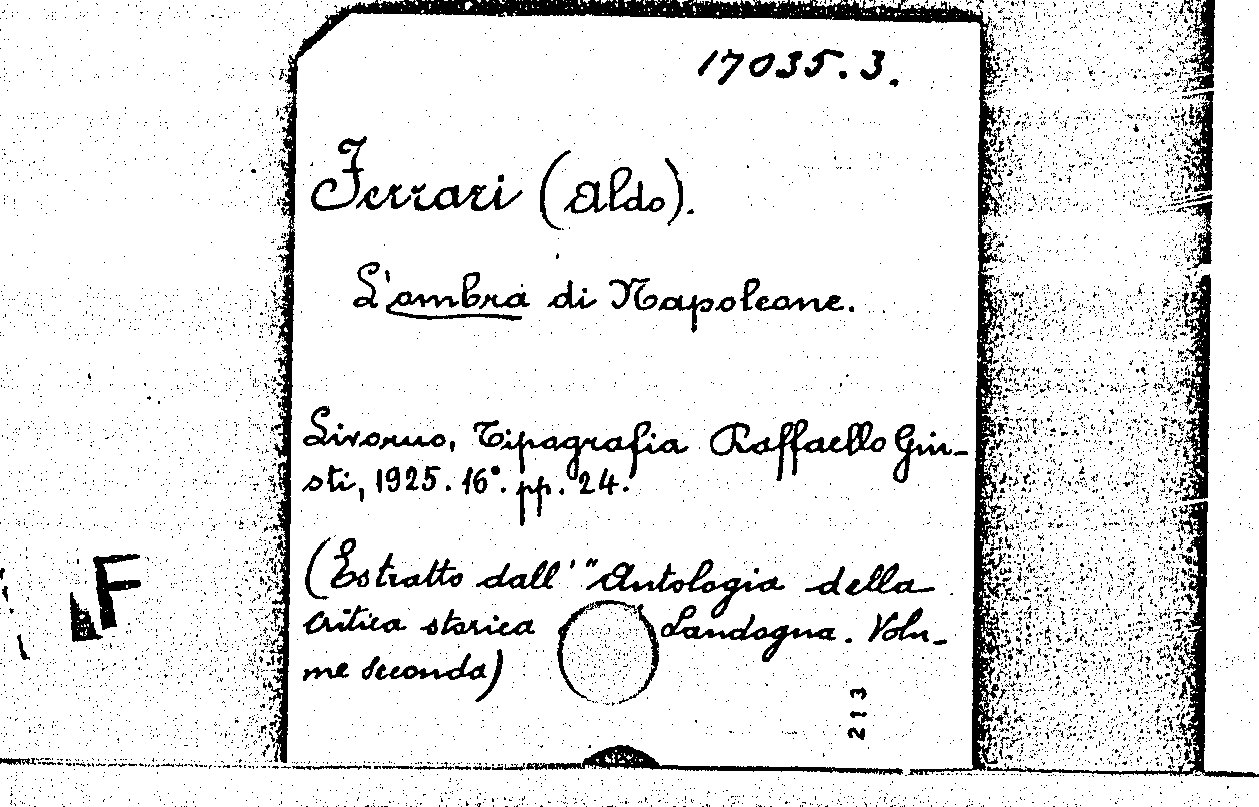 17035.3.
Ferrari (Aldo).
L'ombra di Napoleone.
Livorno, Tipografia Raffaello Giu-
sti, 1925. 16°. pp. 24.
(Estratto dall'"Antologia della
critica storica Landogna. Volu-
me secondo)
F
213